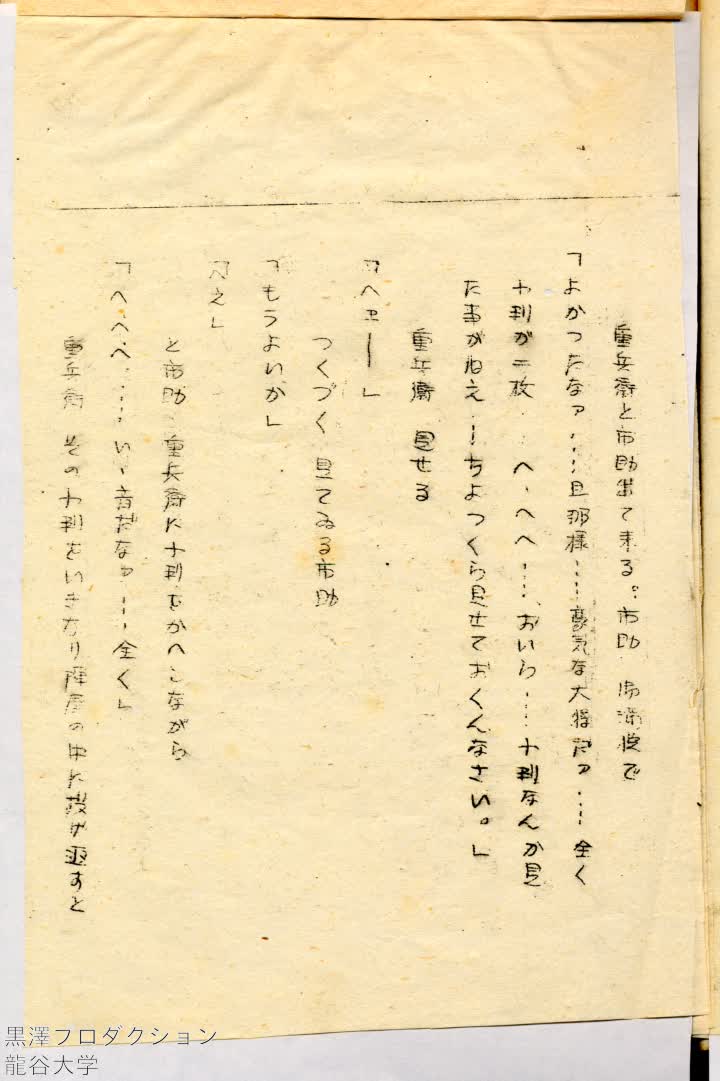 重兵衛と市助出て来る。市助 満悦で
「よかつたなァ……旦那様……豪気な大将だァ……全く
小判が二枚……へ、へへ……おいら……小判なんか見
た事がねえ……ちよつくら見せておくんなさい。」
重兵衛 見せる
「ヘエー」
つくづく見てゐる市助
「もうよいか」
「へえ」
と市助、重兵衛に小判をかへしながら
「へ、へへ……いゝ音だなァ……全く」
重兵衛 その小判をいきなり陣屋の中に投げ返すと
黒澤プロダクション
龍谷大学